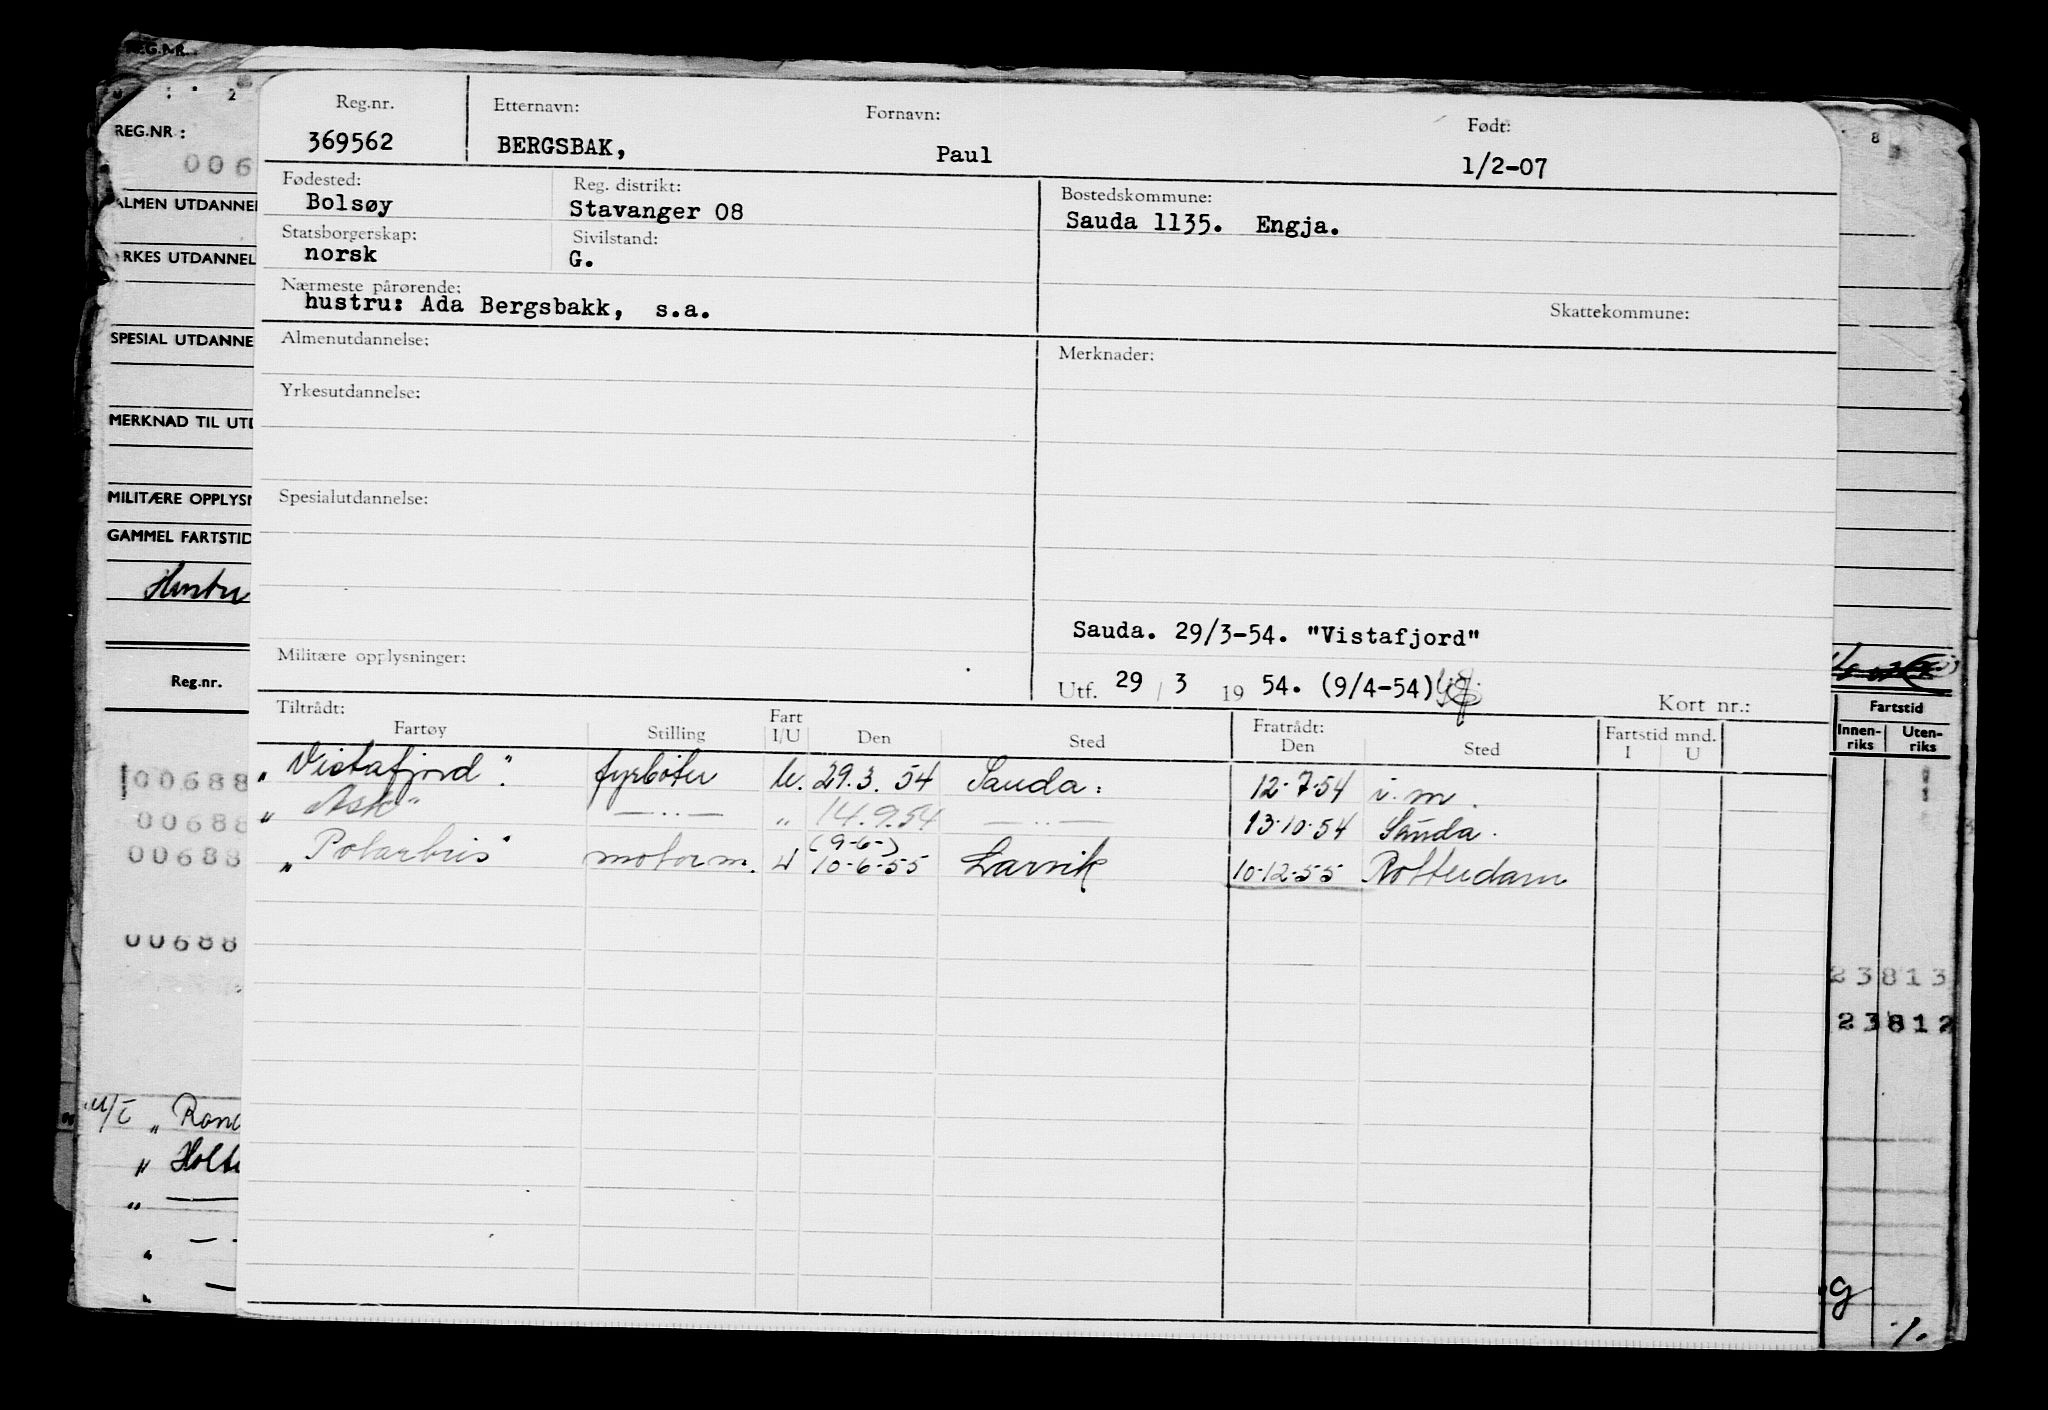 REG.NR.
2
8
REG.NR :
006
ALMEN UTDANNEL
YRKES UTDANNEL
SPESIAL UTDANNE
MERKNAD TIL UTD
MILITÆRE OPPLYSN
GAMMEL FARTSTID
Hustru
Reg.nr.
00688
00688
00688
00688
M/T " Rand
" Holt
"
Reg.nr. Etternavn: Fornavn: Født:
369562 BERGSBAK, Paul 1/2-07
Fødested: Reg. distrikt: Bostedskommune:
Bolsøy Stavanger 08 Sauda 1135. Engja.
Statsborgerskap: Sivilstand:
norsk G.
Nærmeste pårørende: Skattekommune:
hustru: Ada Bergsbakk, s.a.
Almenutdannelse: Merknader:
Yrkesutdannelse:
Spesialutdannelse:
Sauda. 29/3-54. "Vistafjord"
Militære opplysninger:
Utf. 29 / 3 19 54. (9/4-54)
Kort nr.:
Tiltrådt: Fratrådt:
Fartøy Stilling Fart I/U Den Sted Den Sted Fartstid mnd. I U
"Vistafjord". fyrbøter U. 29.3.54 Sauda. 12-7-54 i.m.
"Ask" —〃— " 14.9.54 —〃— 13-10-54 Sauda.
(9-6-)
"Polarbris" motorm. U 10-6-55 Larvik 10-12-55 Rotterdam
Fartstid
Innen-
riks
Uten-
riks
23813
23812
g